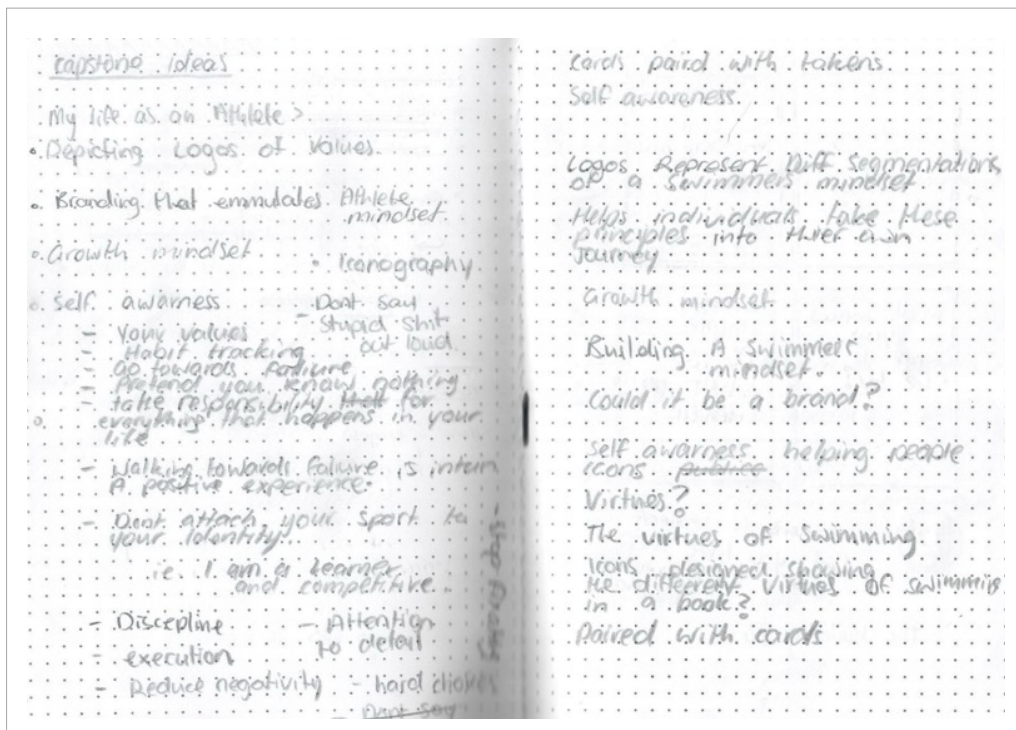 Capstone ideas
My life as an Athlete >
Depicting Logos of values
Branding that emmulates Athlete
mindset
Growth mindset
• Iconography
Self awarness
- Your values
- Habit tracking
- Go towards failure
- Pretend you know nothing
- take responsibility for
everything that happens in your
life
- Dont say
stupid shit
out loud
- Walking towards failure is intern
A positive experience.
- Dont attach your sport to
your identity
ie. I am a learner
and competitive
- Discepline
- execution
- Reduce negativity
- Attention
to deteil
- hard choices
Dont say
Cards paired with takens
Self awareness
Logos Represent Diff Segmentations
of a swimmers mindset
Helps individuals take these
principles into their own
Journey
Growth mindset
Building A swimmers
mindset.
Could it be a brand?
Self awarness helping people
icons
Virtues?
The virtues of swimming.
Icons designed showing
the different virtues of swimming
in a book?
Paired with cards